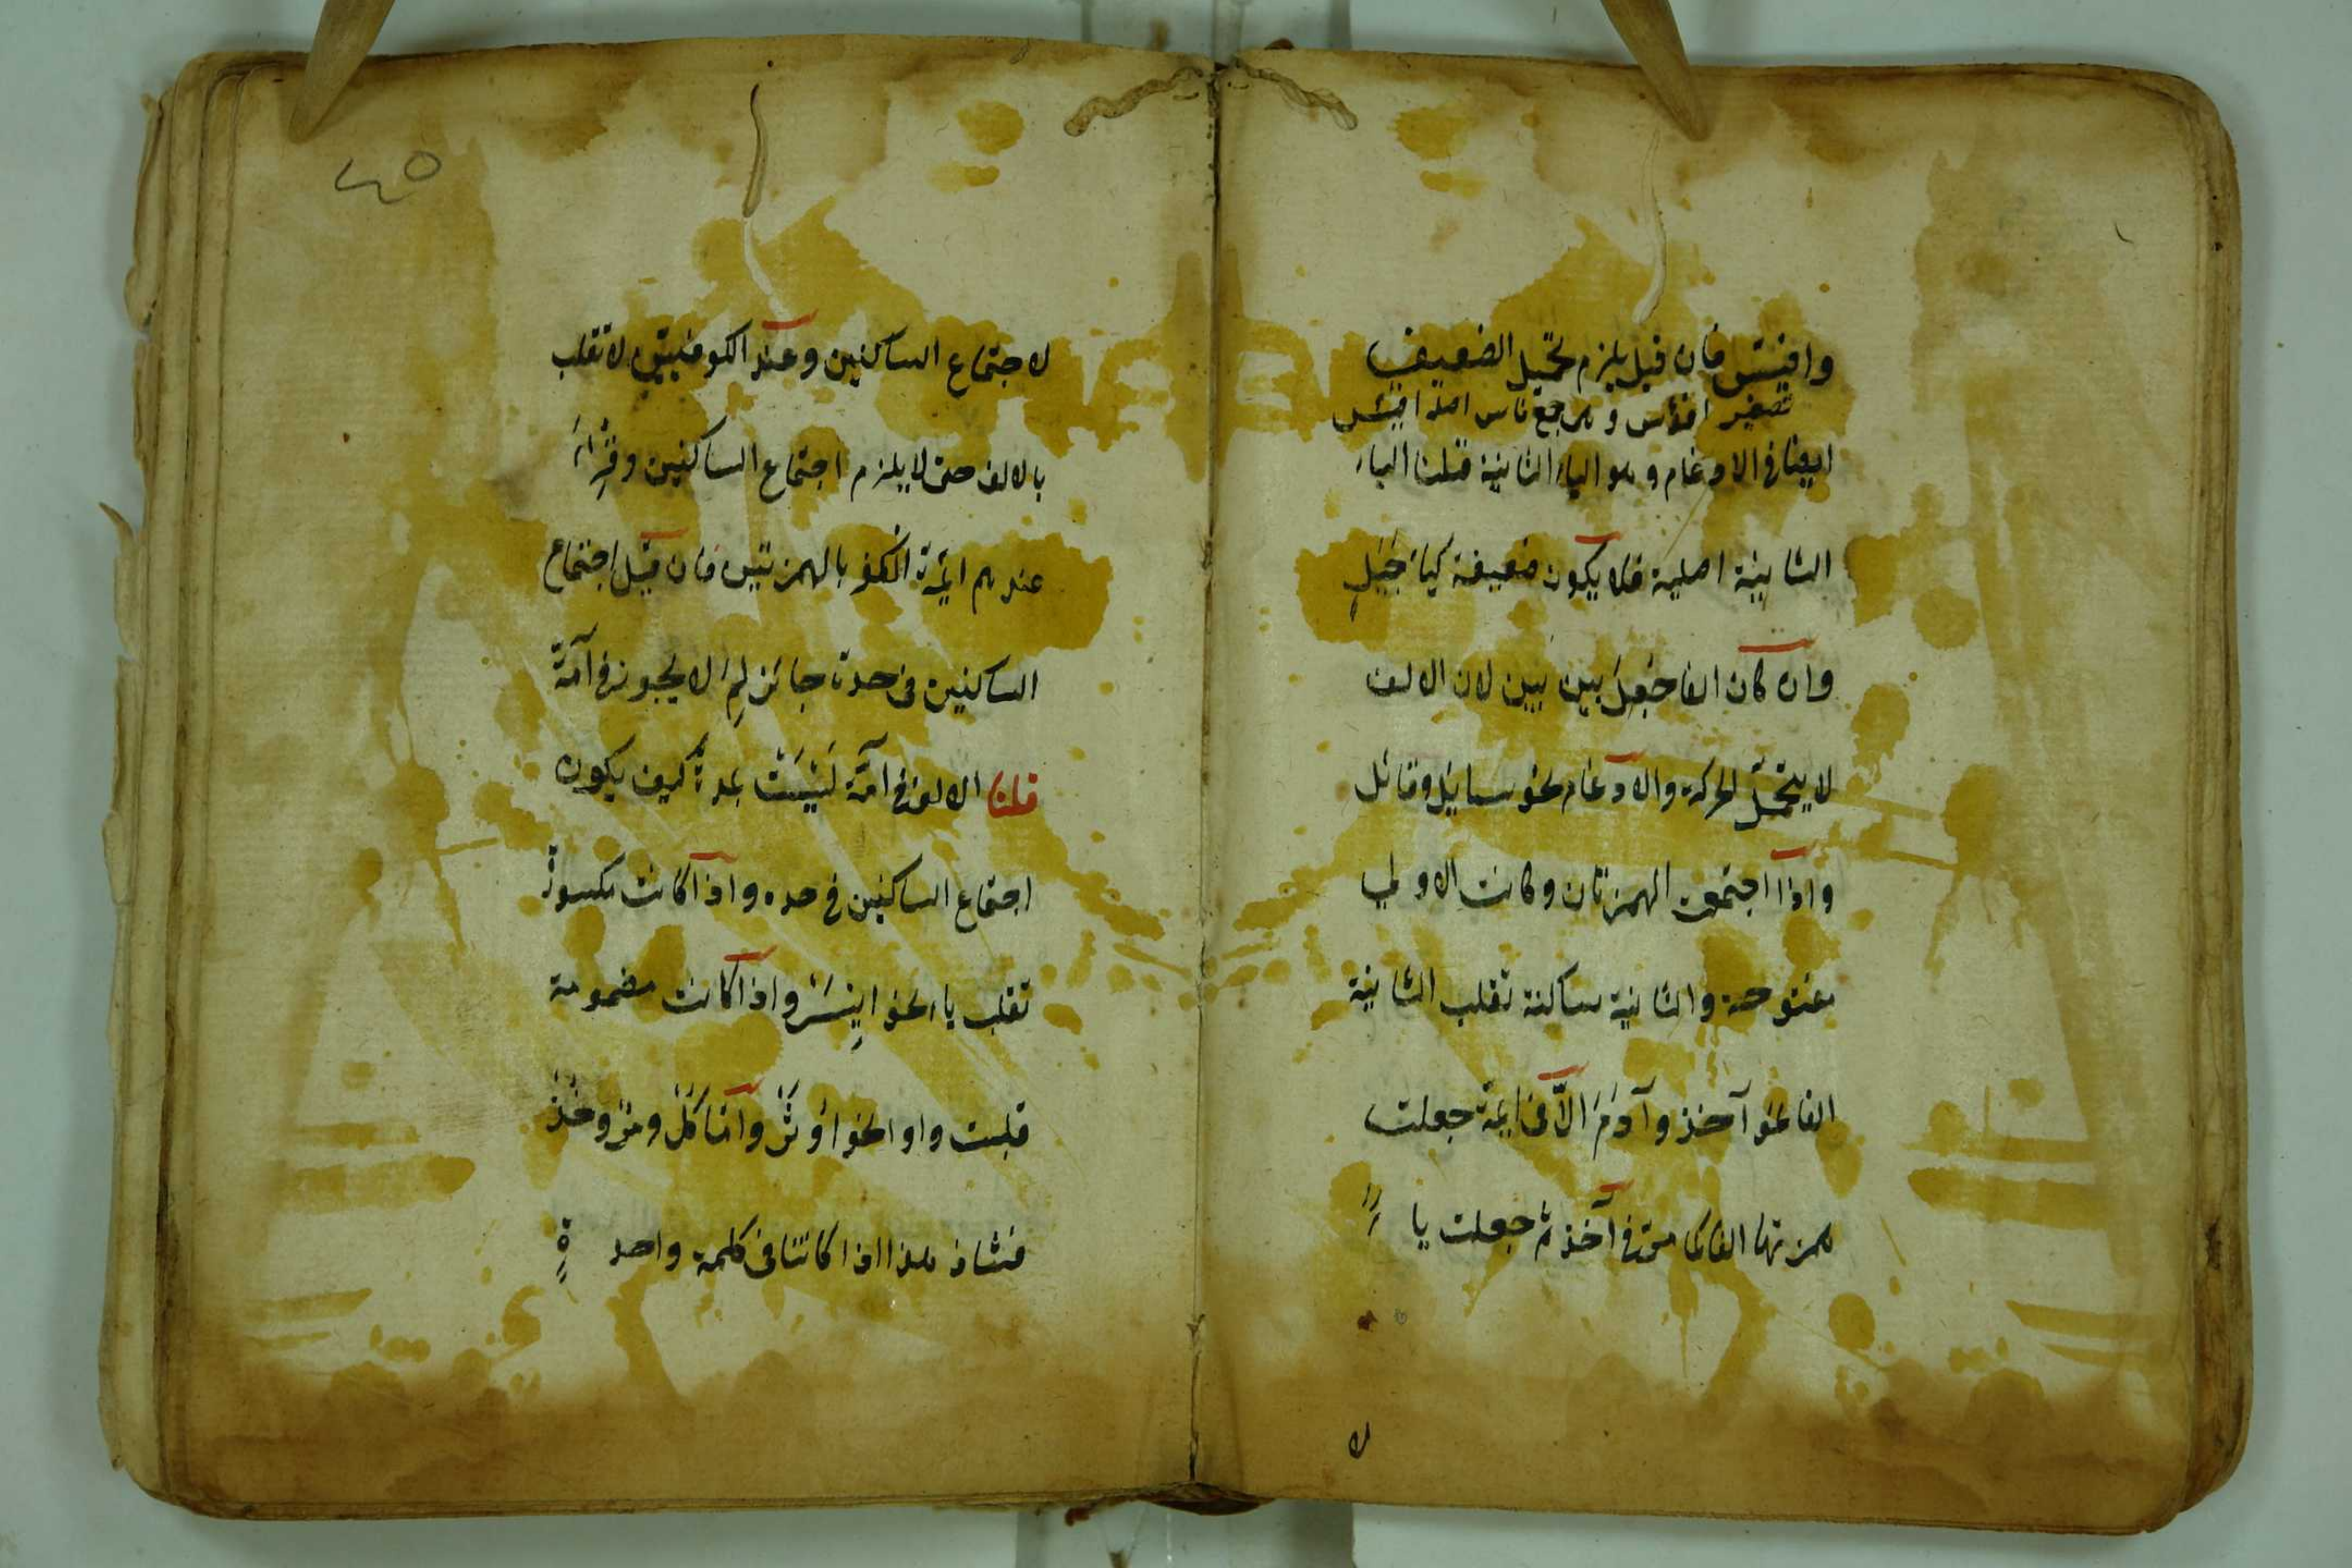 وافيئس فان قيل يلزم تحمل الضعيف
تصغير افؤس وهو جمع فاس اصله افيئس
ايضا في الادغام وهو الياء الثانية قلنا الياء
الثانية اصلية فلا يكون ضعيفة كياء جَيَلٍ
وان كان الفا جُعِلَ بين بين لان الالف
لا يتحمل الحركة والادغام نحو سائل وقائل
واذا اجتمعت الهمزتان وكانت الاولى
مفتوحة والثانية ساكنة تقلب الثانية
الفا نحو آخذ وآدَمَ الّا في ايمة جعلت
همزتها الفا كما مرّ في آخذ ثم جعلت ياءً
لا
٤٥
لاجتماع الساكنين وعند الكوفيين لا تقلب
بالالف حتى لا يلزم اجتماع الساكنين وقِرُاءَ
عندهم ائمة الكفر بالهمزتين فان قيل اجتماع
الساكنين في حده جائز لِمَ لا يجوز في آمّة
قلنا الالف في آمّة لَيْسَتْ بمدةٍ كيف يكون
اجتماع الساكنين في حده واذا كانت مكسورة
تقلب ياء نحو اِيْسَرْ واذا كانت مضمومة
قلبت واوا نحو اوْثَرْ وامّا كُلْ ومُرْ وخُذْ
فشاذ هذا اذا كانتا في كلمة واحدةٍ